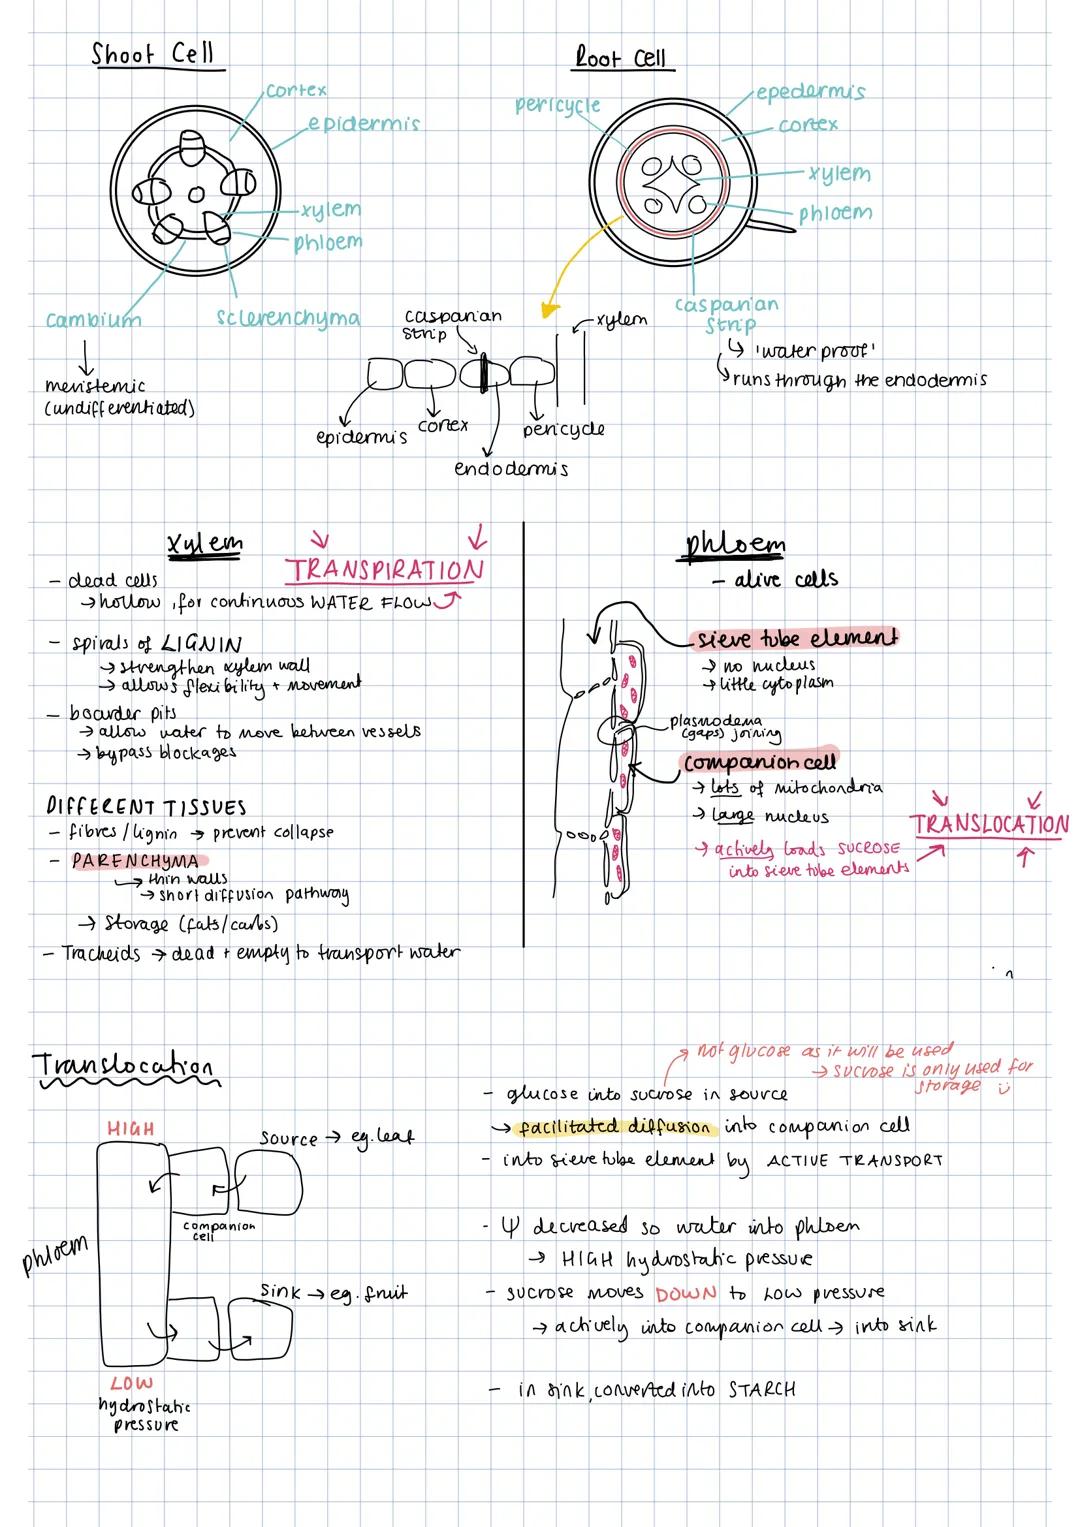 Shoot Cell
cortex
epidermis
xylem
phloem
cambium
sclerenchyma
meristemic
(undifferentiated)
Root Cell
pericycle
epedermis
cortex
xylem
phloem
casparian
strip
↳ 'waterproof'
↳ runs through the endodermis
casparian
strip
xylem
epidermis
cortex
pericycle
endodermis
xylem
TRANSPIRATION
- dead cells
→ hollow, for continuous WATER FLOW
- spirals of LIGNIN
→ strengthen xylem wall
→ allows flexibility + movement
- boarder pits
→ allow water to move between vessels
→ bypass blockages
DIFFERENT TISSUES
- fibres / lignin → prevent collapse
- PARENCHYMA
↳ thin walls
→ short diffusion pathway
→ storage (fats/carbs)
- Tracheids → dead + empty to transport water
phloem
- alive cells
sieve tube element
→ no nucleus
→ little cytoplasm
plasmodema
(gaps) joining
companion cell
→ lots of mitochondria
→ large nucleus
→ actively loads SUCROSE
into sieve tube elements
TRANSLOCATION
Translocation
HIGH
source → eg. leaf
companion
cell
phloem
sink → eg. fruit
LOW
hydrostatic
pressure
not glucose as it will be used
→ sucrose is only used for
storage
- glucose into sucrose in source
→ facilitated diffusion into companion cell
- into sieve tube element by ACTIVE TRANSPORT
- Ψ decreased so water into phloem
→ HIGH hydrostatic pressure
- sucrose moves DOWN to LOW pressure
→ actively into companion cell → into sink
- in sink, converted into STARCH